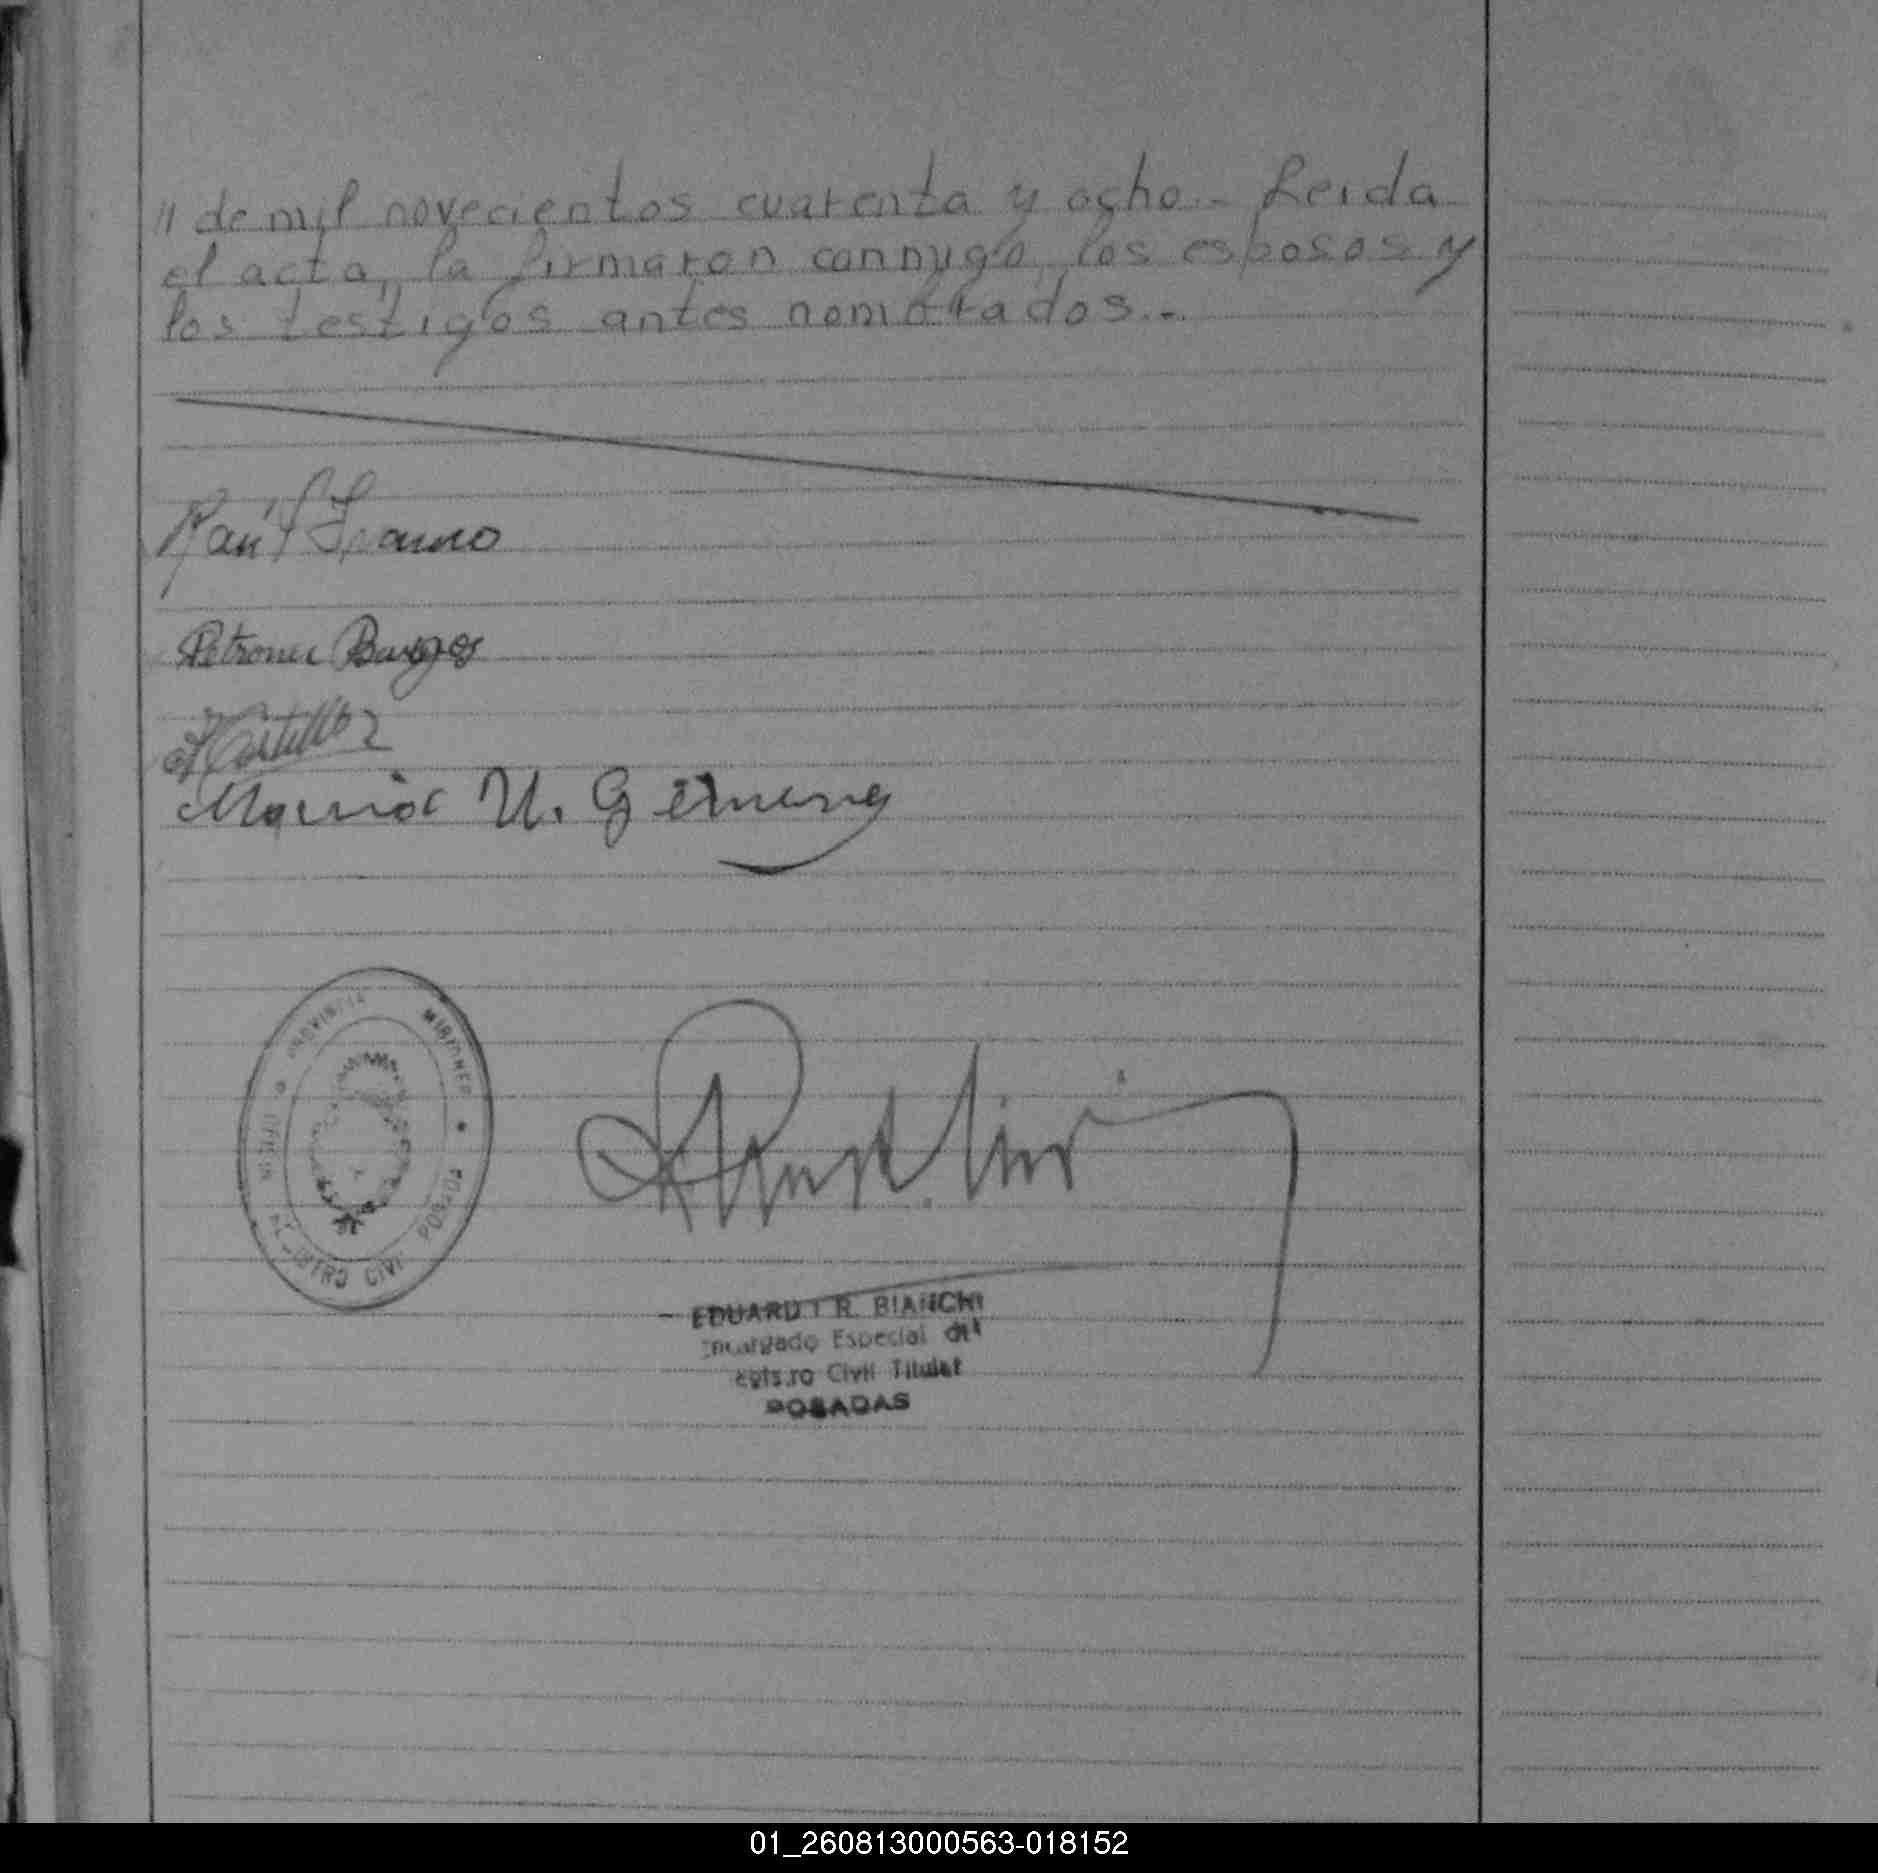 // de mil novecientos cuarenta y ocho.- Leida
el acta, la firmaron conmigo, los esposos y
los testigos antes nombrados.-
Raúl Franco
Petrona Borges
Castillo
Maria U. Gimenez
PROVINCIA MISIONES
OFICINA REGISTRO CIVIL POSADAS
EDUARDO R. BIANCHI
Encargado Especial del
Registro Civil Titular
POSADAS
01_260813000563-018152